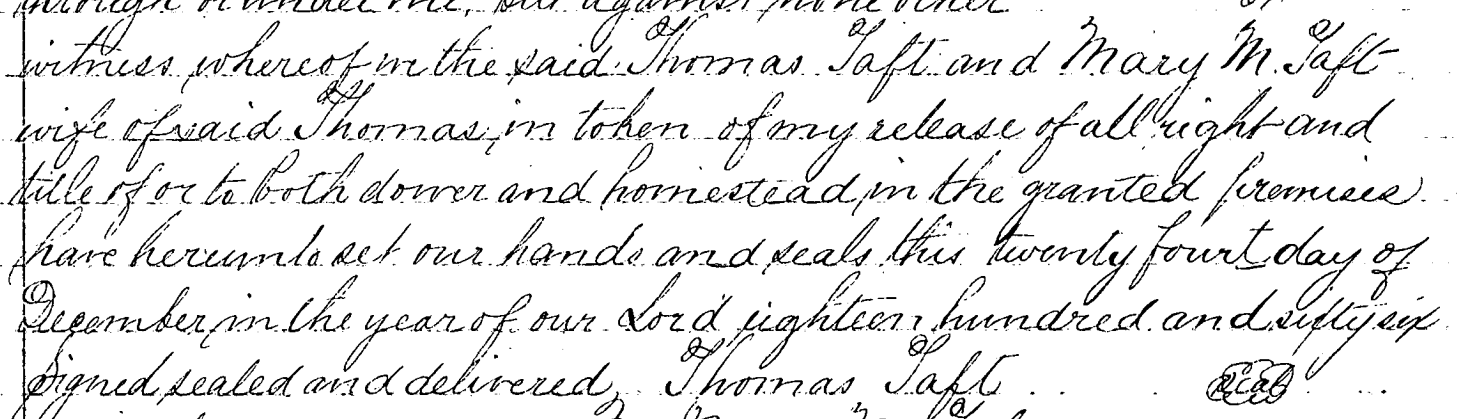 through or under me, but against none other
witness whereof we the said Thomas Taft and Mary M. Taft
wife of said Thomas, in token of my release of all right and
title of or to both dower and homestead in the granted premises
have hereunto set our hands and seals this twenty fourt day of
December in the year of our Lord eighteen hundred and sixty six
Signed, sealed and delivered, Thomas Taft Seal